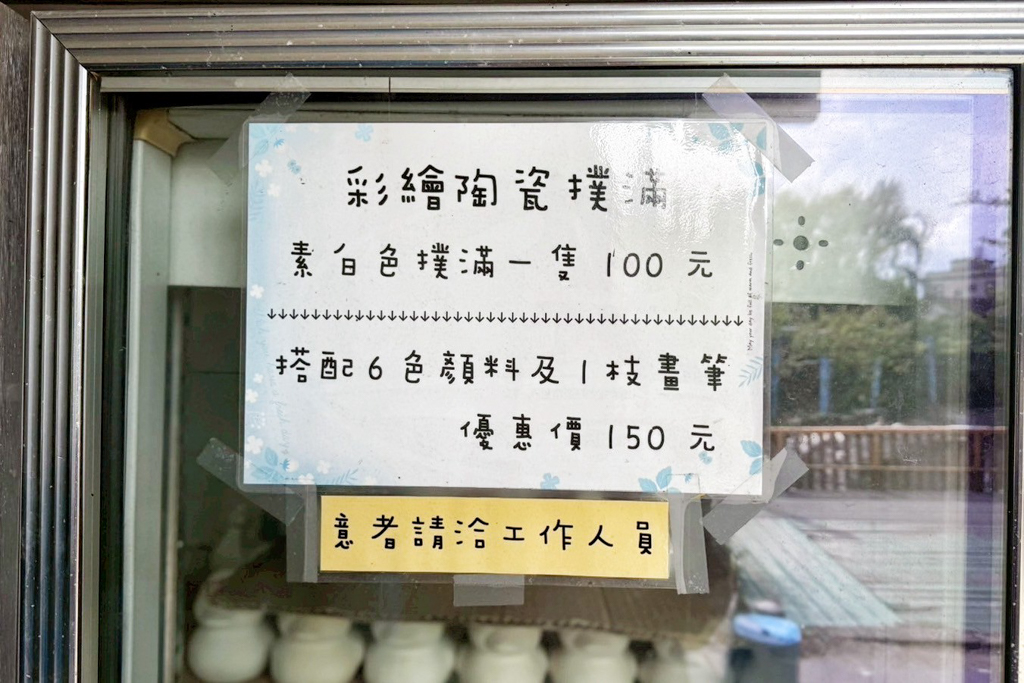 彩繪陶瓷撲滿
素白色撲滿一隻 100 元
↓↓↓↓↓↓↓↓↓↓↓↓↓↓↓↓↓↓↓↓↓↓↓↓↓↓↓↓↓↓↓↓↓↓↓↓↓↓↓
搭配6色顏料及1枝畫筆
優惠價 150 元
意者請洽工作人員